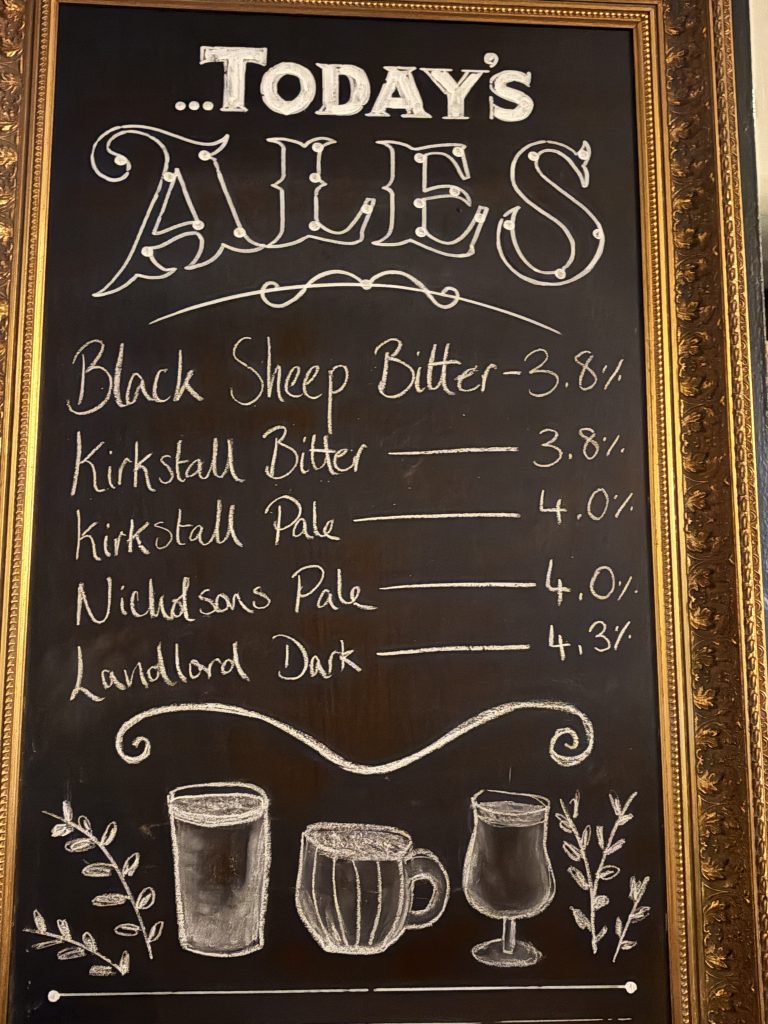 ...TODAY'S
ALES
Black Sheep Bitter - 3.8%
Kirkstall Bitter — 3.8%
Kirkstall Pale — 4.0%
Nicholsons Pale — 4.0%
Landlord Dark — 4.3%